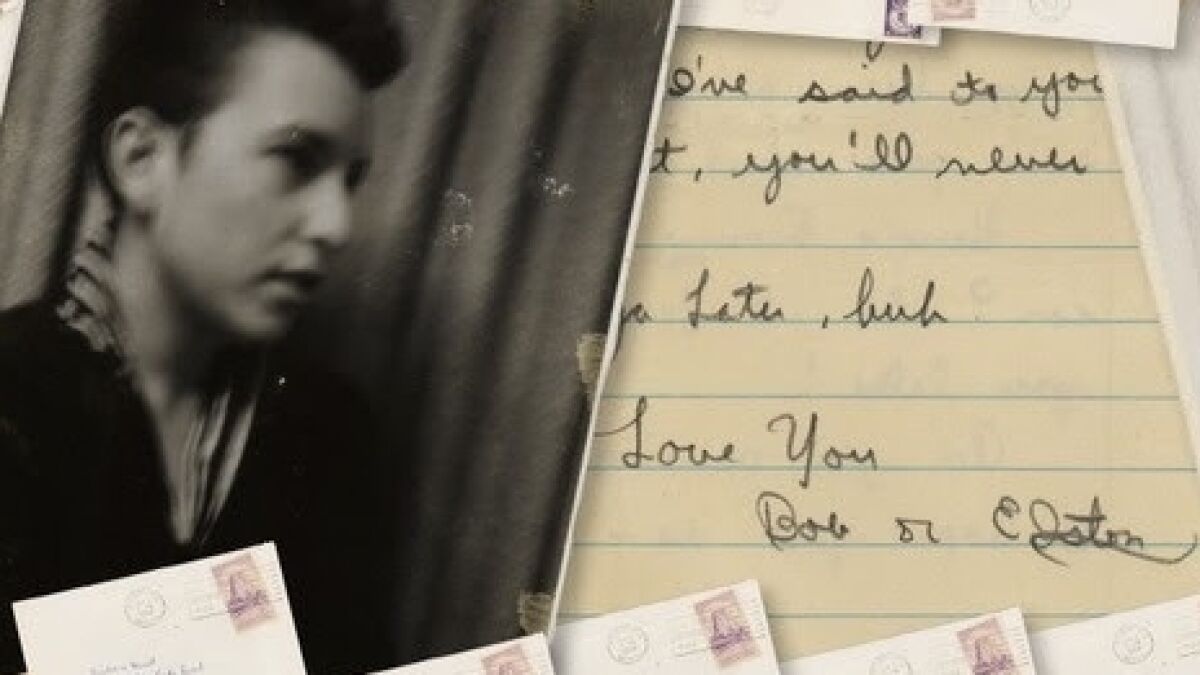 I've said to you
t, you'll never
a Later, huh
Love You
Bob or Elston